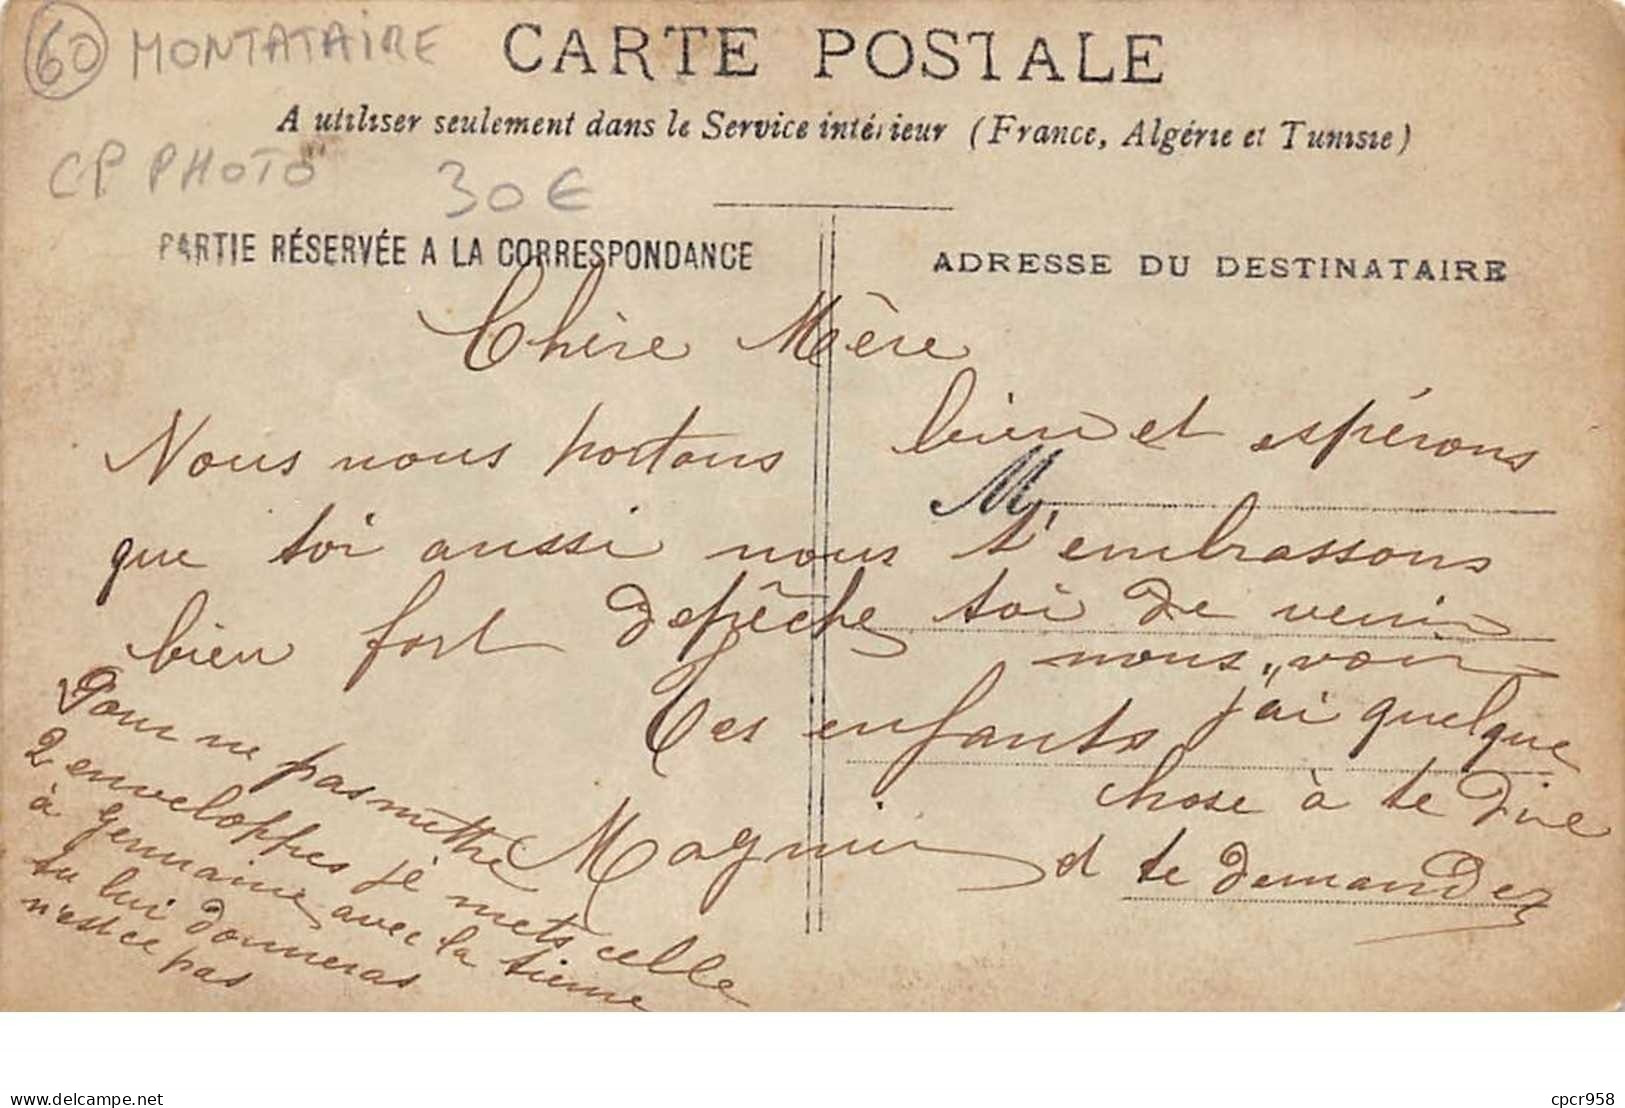 60 MONTATAIRE CARTE POSTALE
A utiliser seulement dans le Service intérieur (France, Algérie et Tunisie)
CP PHOTO 30€
PARTIE RÉSERVÉE A LA CORRESPONDANCE
ADRESSE DU DESTINATAIRE
Chère Mère
Nous nous portons bien et espérons
M
que toi aussi nous t'embrassons
bien fort depêche toi de venir
nous voir
Tes enfants j'ai quelque
chose à te dire
Magnier et te demander
Pour ne pas mettre
2 enveloppes je mets celle
à Germaine avec la tienne
tu lui donneras
n'est ce pas
delcampe.net
cpcr958